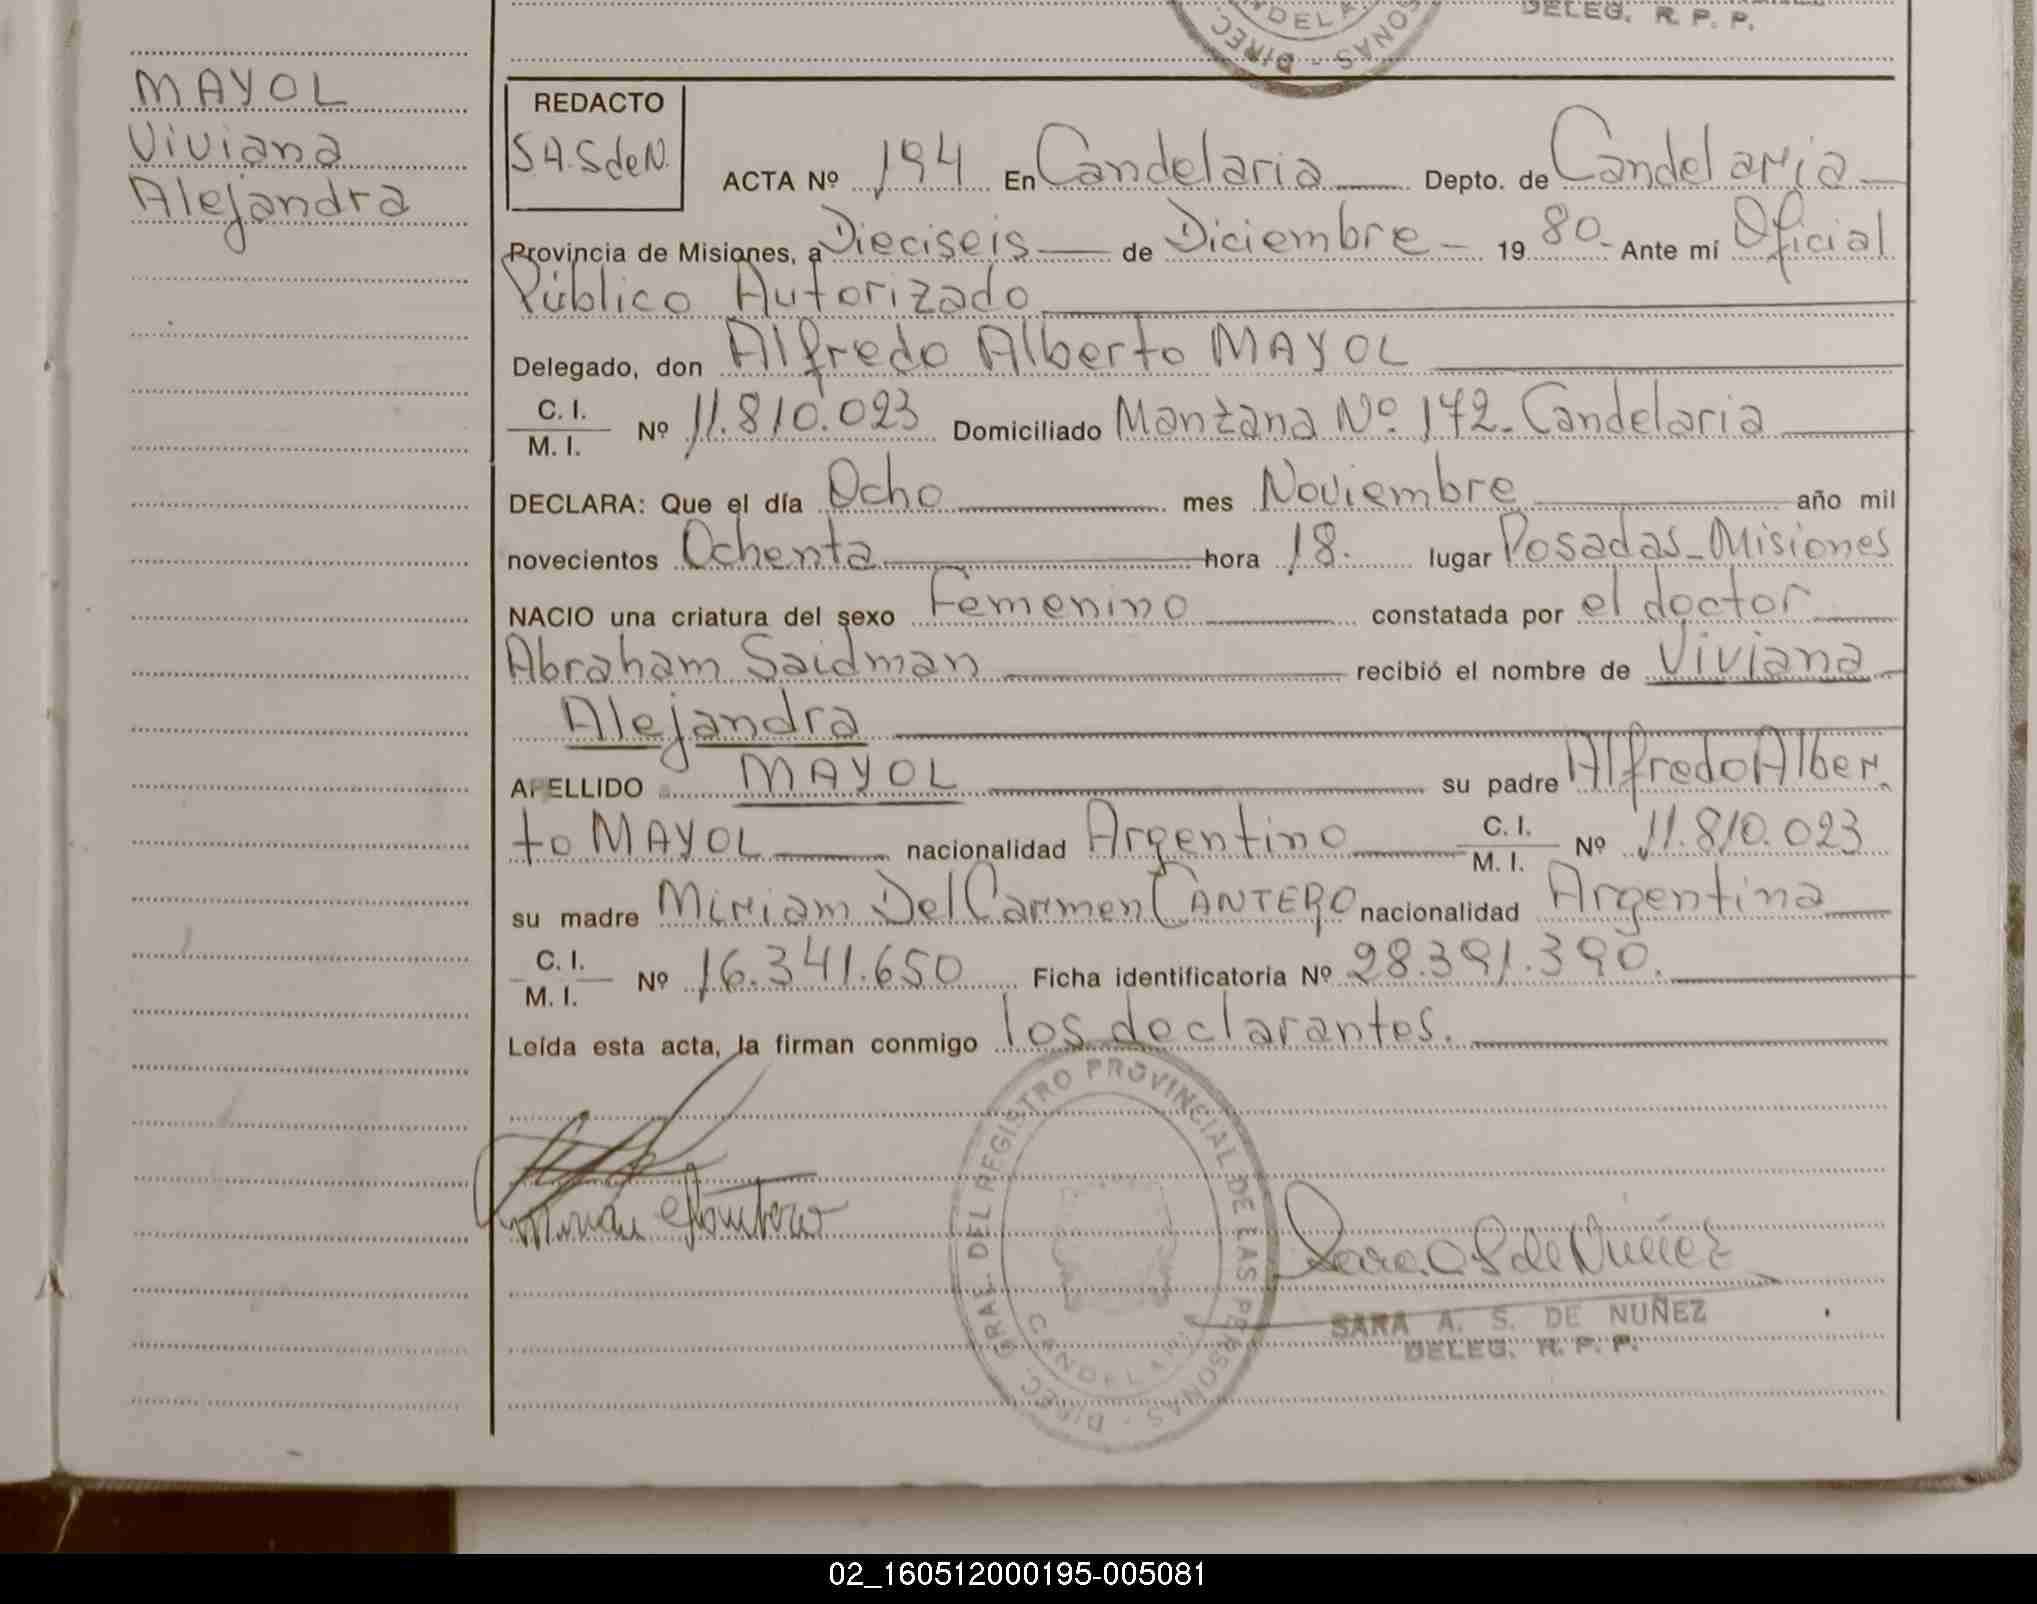 DIREC. PERSONAS - CANDELARIA
DELEG. R. P. P.
MAYOL
Viviana
Alejandra
REDACTO
S.A.S de N.
ACTA Nº 194 En Candelaria Depto. de Candelaria
Provincia de Misiones, a Dieciseis de Diciembre 1980. Ante mí Oficial
Público Autorizado
Delegado, don Alfredo Alberto MAYOL
C. I.
M. I. Nº 11.810.023 Domiciliado Manzana Nº 172. Candelaria
DECLARA: Que el día Ocho mes Noviembre año mil
novecientos Ochenta hora 18. lugar Posadas-Misiones
NACIO una criatura del sexo Femenino constatada por el doctor
Abraham Saidman recibió el nombre de Viviana
Alejandra
APELLIDO MAYOL su padre Alfredo Alber
to MAYOL nacionalidad Argentino C. I. M. I. Nº 11.810.023
su madre Miriam Del Carmen CANTERO nacionalidad Argentina
C. I.
M. I. Nº 16.341.650 Ficha identificatoria Nº 28.391.390.
Leída esta acta, la firman conmigo los declarantes.
DIREC. GRAL. DEL REGISTRO PROVINCIAL DE LAS PERSONAS -
CANDELARIA
Sara A S de Nuñez
SARA A. S. DE NUÑEZ
DELEG. R. P. P.
02_160512000195-005081